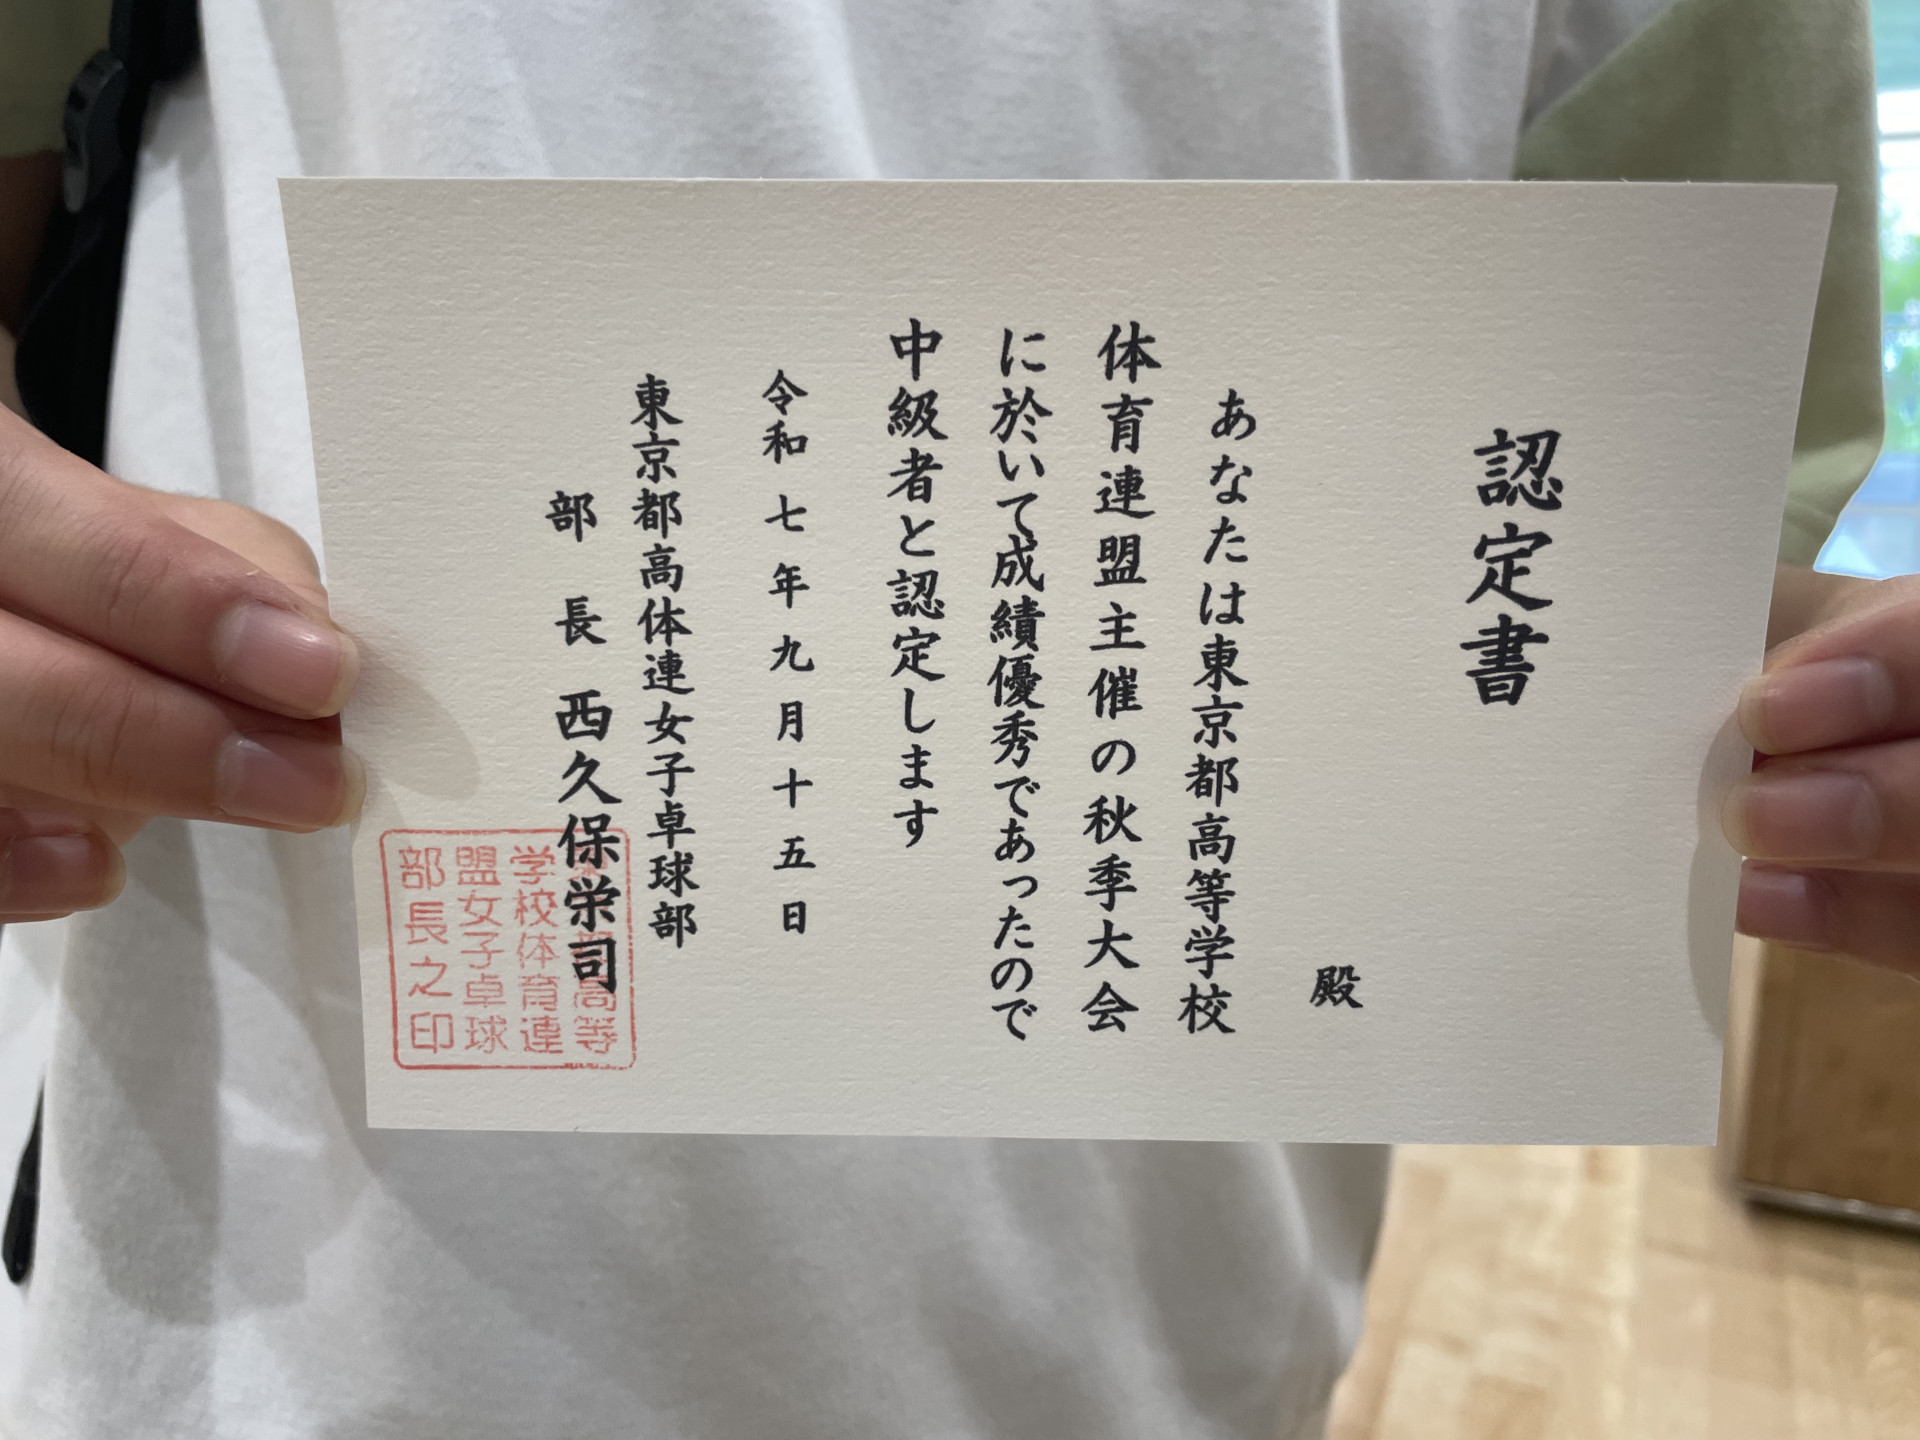 認定書
殿
あなたは東京都高等学校
体育連盟主催の秋季大会
に於いて成績優秀であったので
中級者と認定します
令和七年九月十五日
東京都高体連女子卓球部
部長 西久保栄司
高等
学校体育連
盟女子卓球
部長之印